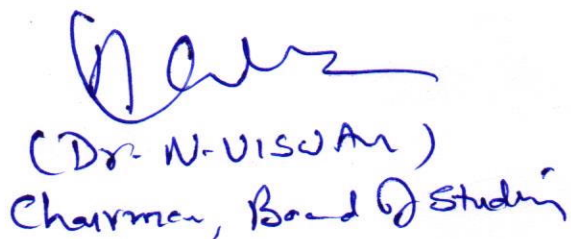 (Dr. N. VISWAM)
Chairman, Board of Studies